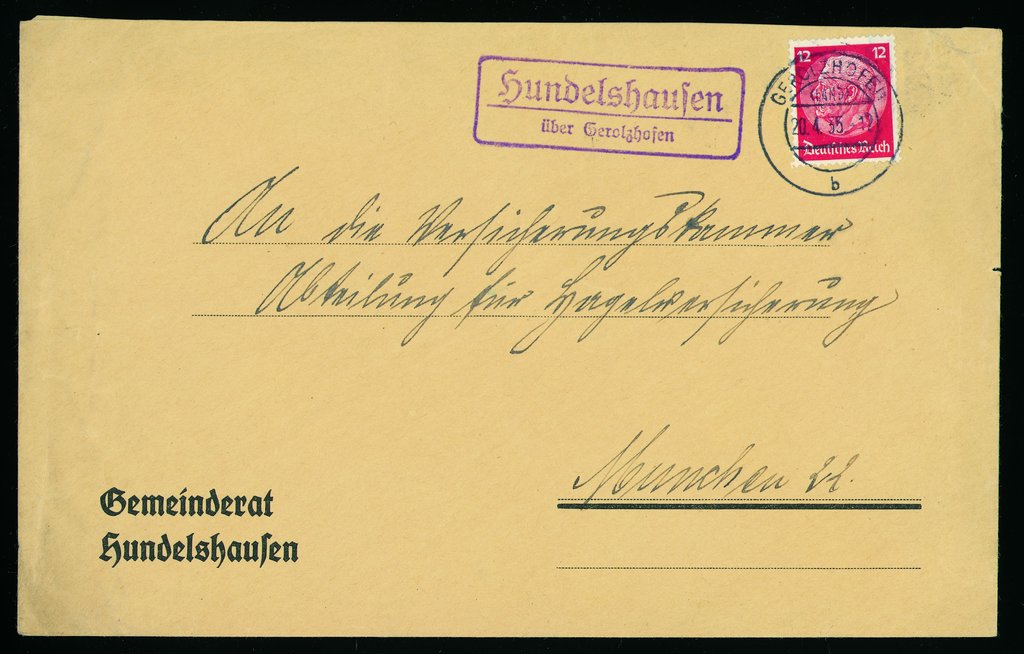 Hundelshausen
über Gerolzhofen
12 12
GEROLZHOFEN
20.4.35. 12
Deutsches Reich
b
An die Versicherungskammer
Abteilung für Hagelversicherung
München 22.
Gemeinderat
Hundelshausen